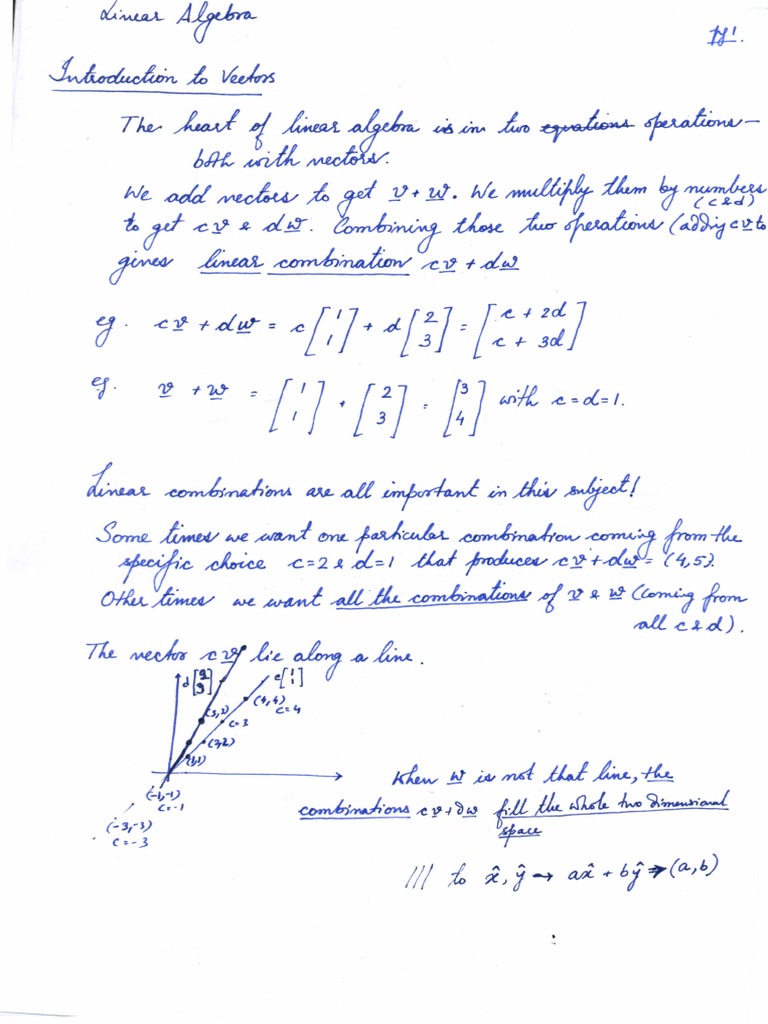 Linear Algebra
Introduction to Vectors
The heart of linear algebra is in two equations operations—
both with vectors.
We add vectors to get v + w. We multiply them by numbers
(c & d)
to get cv & dw. Combining those two operations (adding cv to
gives linear combination cv + dw
eg. cv + dw = c [1 1] + d [2 3] = [c + 2d c + 3d]
eg. v + w = [1 1] + [2 3] = [3 4] with c = d = 1.
Linear combinations are all important in this subject!
Some times we want one particular combination coming from the
specific choice c=2 & d=1 that produces cv + dw = (4,5).
Other times we want all the combinations of v & w (coming from
all c & d).
The vector cv lie along a line.
d [2 3]
c [1 1]
(4,4)
c=4
(3,3)
c=3
(2,2)
(1,1)
(-1,-1)
c=-1
(-3,-3)
c=-3
When w is not that line, the
combinations cv+dw fill the whole two dimensional
space
/// to x̂, ŷ → ax̂ + bŷ → (a,b)